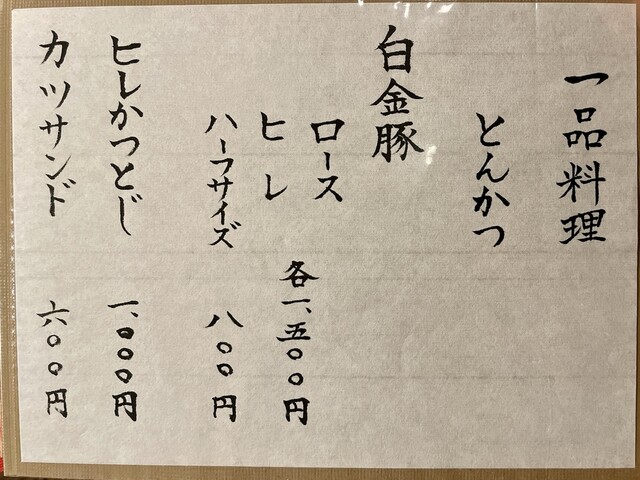 一品料理
とんかつ
白金豚
ロース
ヒレ
各一、五〇〇円
ハーフサイズ 八〇〇円
ヒレかつとじ 一、〇〇〇円
カツサンド 六〇〇円